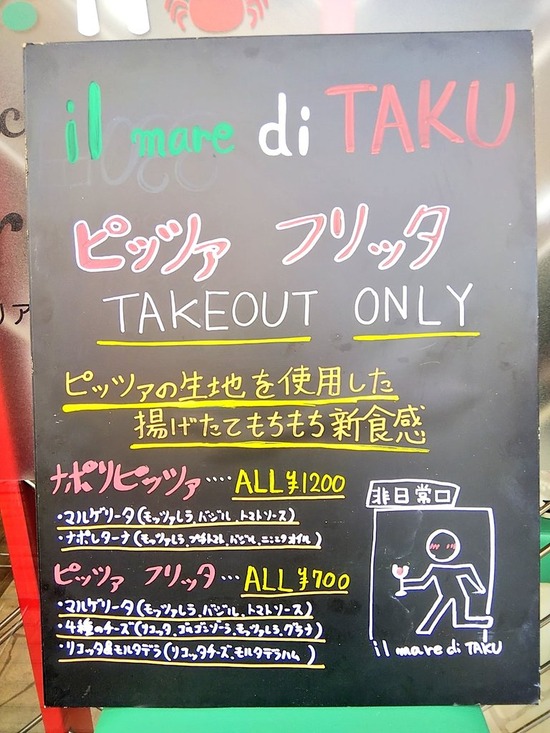 il mare di TAKU
ピッツァ フリッタ
TAKEOUT ONLY
ピッツァの生地を使用した
揚げたてもちもち新食感
ナポリピッツァ‥‥ALL¥1200
・マルゲリータ(モッツァレラ、バジル、トマトソース)
・ナポレターナ(モッツァレラ、プチトマト、バジル、ニンニクオイル)
ピッツァ フリッタ‥‥ALL¥700
・マルゲリータ(モッツァレラ、バジル、トマトソース)
・4種のチーズ(リコッタ、ゴルゴンゾーラ、モッツァレラ、グラナ)
・リコッタ&モルタデラ(リコッタチーズ、モルタデラハム)
非日常口
il mare di TAKU